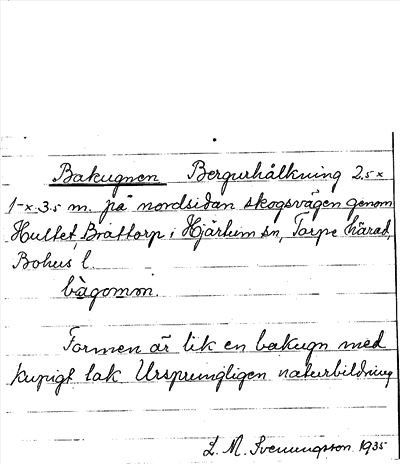 Bakugnen Bergurhålkning 2.5 x
1-x 3.5 m. på nordsidan skogsvägen genom
Hultet, Bråttorp i Hjärtum sn, Torpe härad,
Bohus l.
bàgomon.
Formen är lik en bakugn med
kupigt tak Ursprungligen naturbildning
L. M. Svenungsson 1935